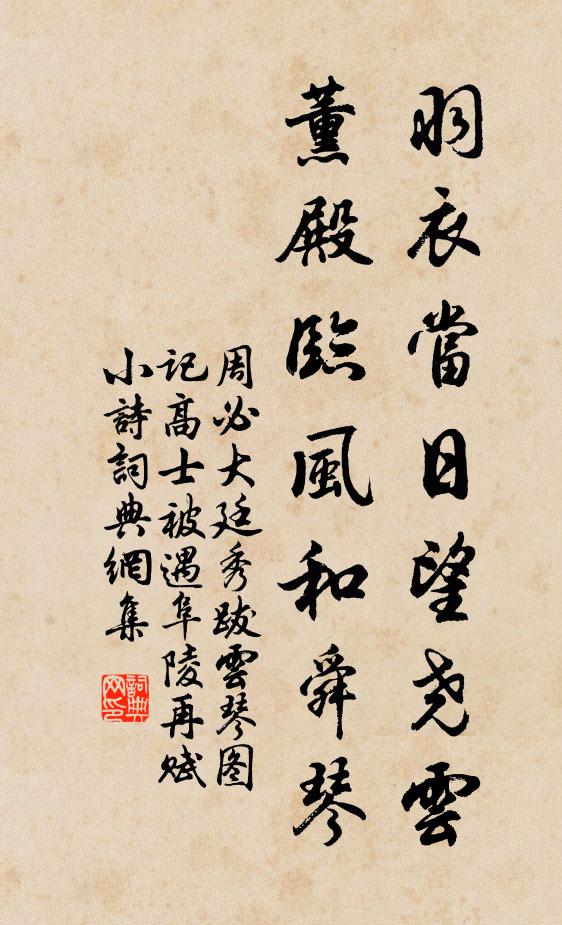 羽衣當日望尧雲
薰殿臨風和舜琴
周必大廷秀跋雲琴图
记高士被遇阜陵再赋
小詩詞典網集
詞典
网印